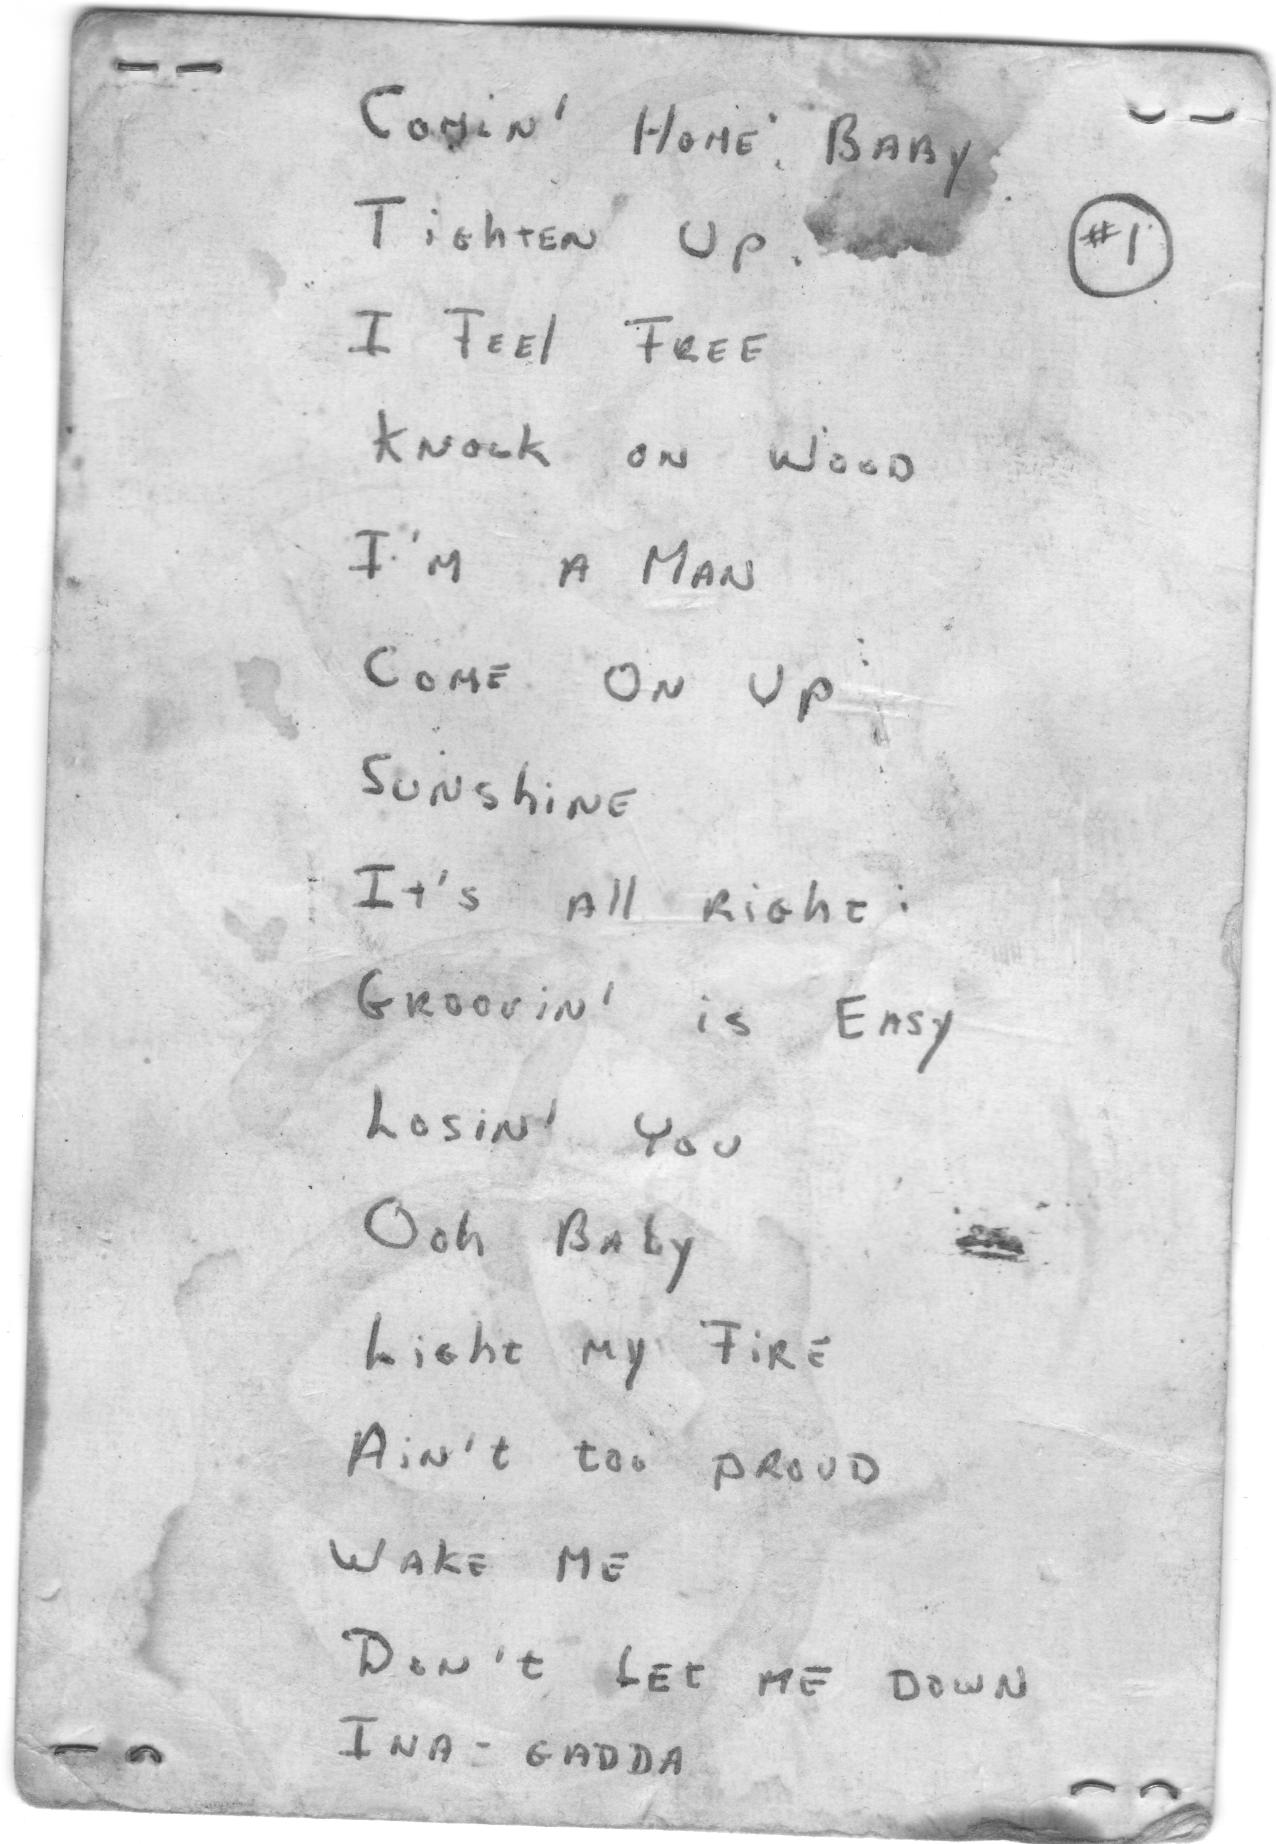 Comin' Home Baby
Tighten Up
#1
I Feel Free
Knock on Wood
I'm a Man
Come On Up
Sunshine
It's all Right
Groovin' is Easy
Losin' You
Ooh Baby
Light my Fire
Ain't too proud
Wake Me
Don't Let me down
Ina-gadda